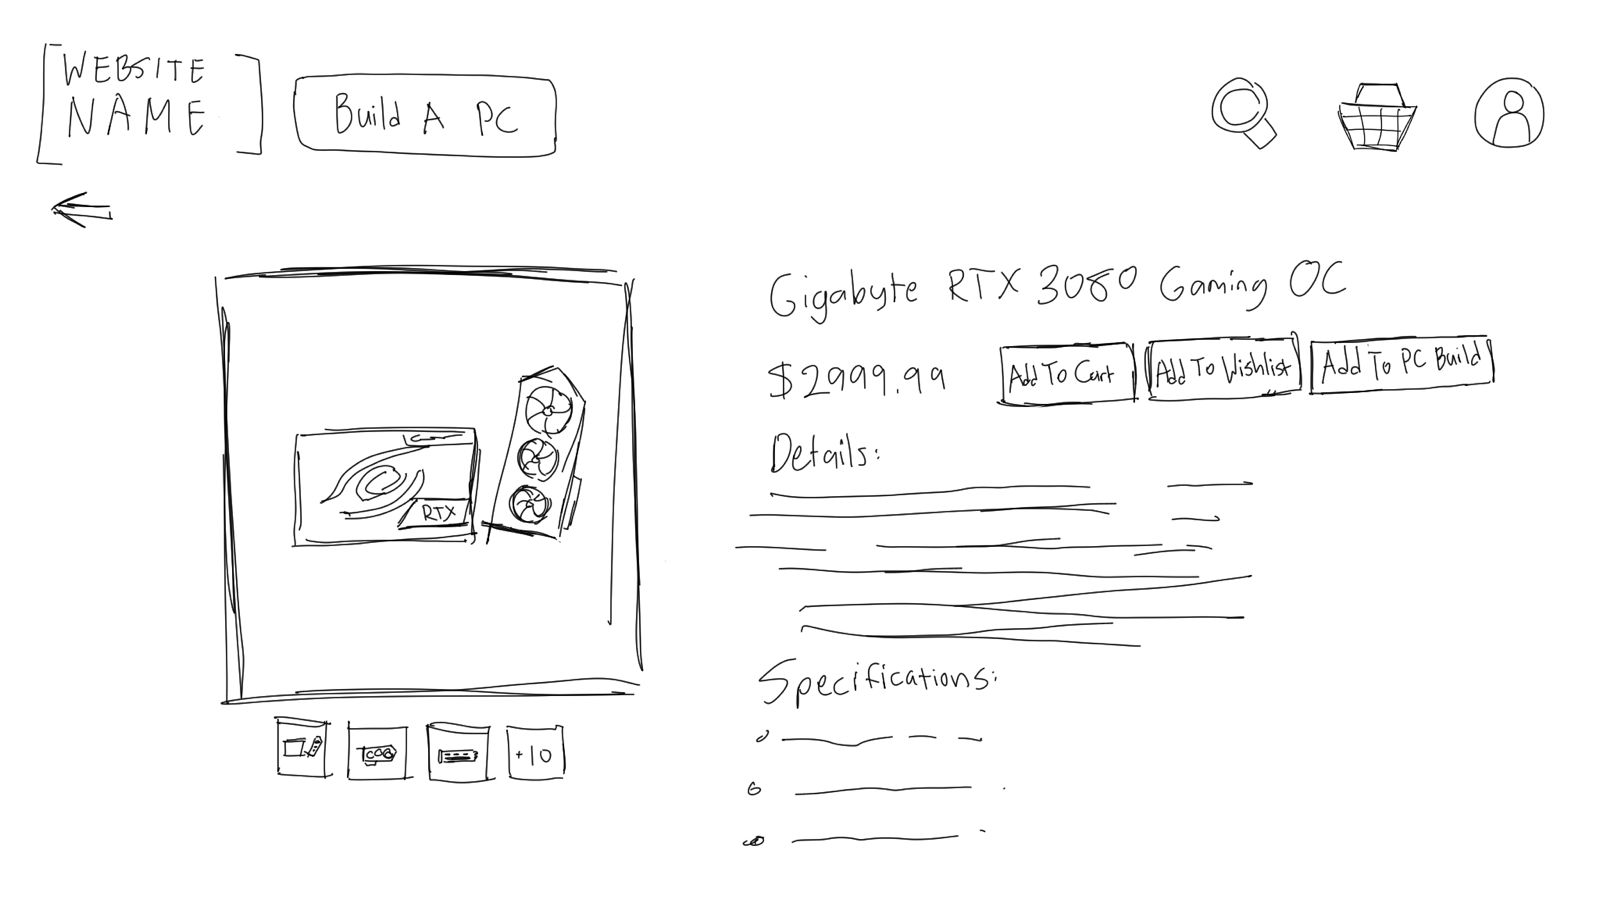 WEBSITE
NAME
Build A PC
Gigabyte RTX 3080 Gaming OC
$2999.99
Add To Cart
Add To Wishlist
Add To PC Build
Details:
RTX
Specifications:
+10